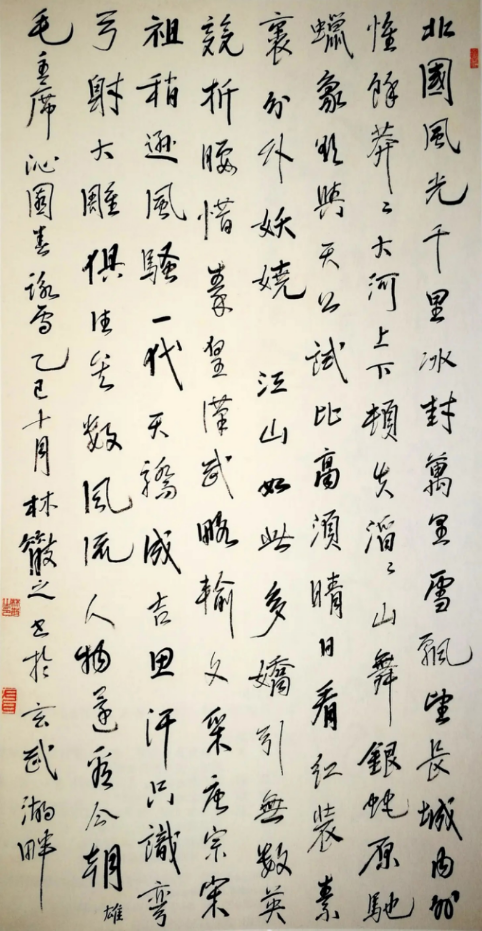 北國風光千里冰封萬里雪飄望長城內外
惟餘莽〻大河上下頓失滔〻山舞銀蛇原馳
蠟象欲與天公試比高須晴日看紅裝素
裹分外妖嬈 江山如此多嬌引無數英
競折腰惜秦皇漢武略輸文采唐宗宋
祖稍遜風騷一代天驕成吉思汗只識彎
弓射大雕俱往矣數風流人物還看今朝 雄
毛主席沁園春詠雪乙巳十月林散之書於玄武湖畔